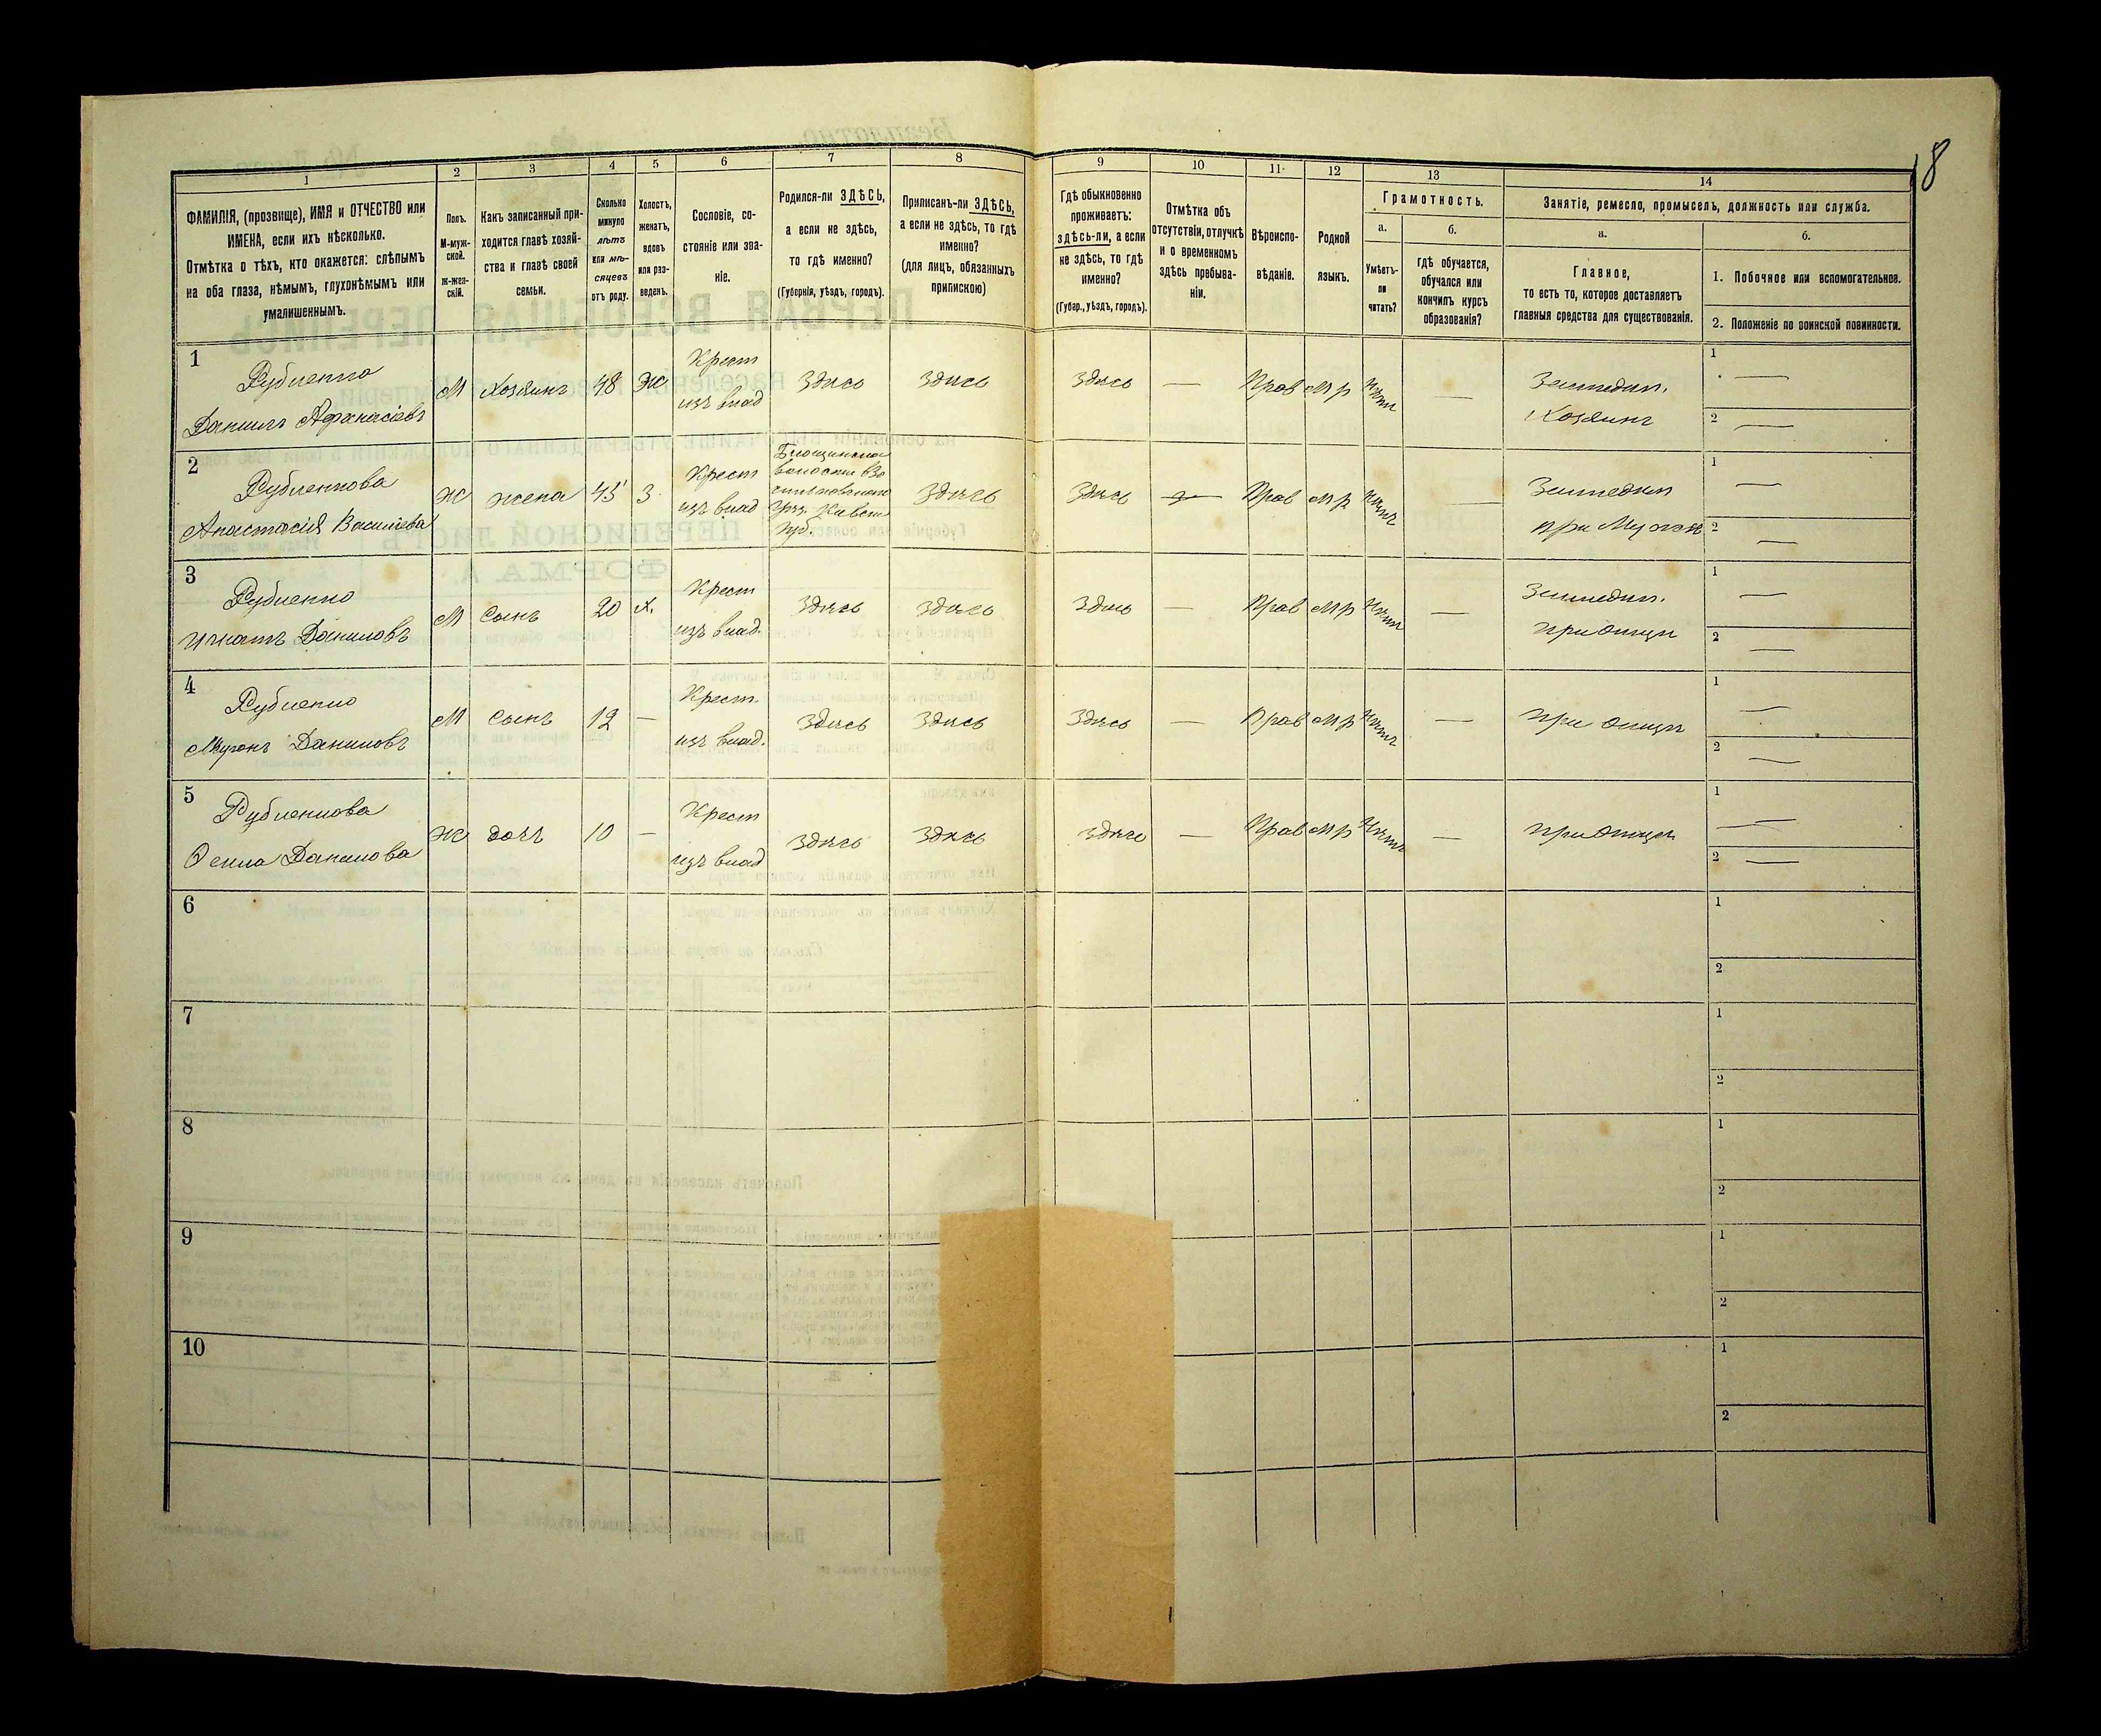 8
1
2
3
4
5
6
7
8
9
10
11
12
13
14
ФАМИЛІЯ, (прозвище), ИМЯ и ОТЧЕСТВО или
ИМЕНА, если ихъ нѣсколько.
Отмѣтка о тѣхъ, кто окажется: слѣпымъ
на оба глаза, нѣмымъ, глухонѣмымъ или
умалишеннымъ.
Полъ.
М-муж-
ской.
Ж-жен-
скій.
Какъ записанный при-
ходится главѣ хозяй-
ства и главѣ своей
семьи.
Сколько
минуло
лѣтъ
или мѣ-
сяцевъ
отъ роду.
Холостъ,
женатъ,
вдовъ
или раз-
веденъ.
Сословіе, со-
стояніе или зва-
ніе.
Родился-ли ЗДѢСЬ,
а если не здѣсь,
то гдѣ именно?
(Губернія, уѣздъ, городъ).
Приписанъ-ли ЗДѢСЬ,
а если не здѣсь, то гдѣ
именно?
(для лицъ, обязанныхъ
припискою)
Гдѣ обыкновенно
проживаетъ:
здѣсь-ли, а если
не здѣсь, то гдѣ
именно?
(Губер., уѣздъ, городъ).
Отмѣтка объ
отсутствіи, отлучкѣ
и о временномъ
здѣсь пребыва-
ніи.
Вѣроиспо-
вѣданіе.
Родной
языкъ.
Грамотность.
а.
Умѣетъ-
ли
читать?
б.
гдѣ обучается,
обучался или
кончилъ курсъ
образованія?
Занятіе, ремесло, промыселъ, должность или служба.
а.
Главное,
то есть то, которое доставляетъ
главныя средства для существованія.
б.
1. Побочное или вспомогательное.
2. Положеніе по воинской повинности.
1
Рубленко
Данилъ Афанасіевъ
М
Хозяинъ
48
Ж
Крест
изъ влад
Здѣсь
Здѣсь
Здѣсь
—
Прав
мр
Нѣтъ
—
Земледѣл.
Хозяинъ
1 —
2 —
2
Рубленкова
Анастасія Василіева
Ж
жена
45
З
Крест
изъ влад
волости
Губ.
Здѣсь
Здѣсь
—
Прав
мр
Нѣтъ
—
Земледѣл
при Мужѣ
1 —
2 —
3
Рубленко
Игнатъ Даниловъ
М
Сынъ
20
х.
Крест
изъ влад.
Здѣсь
Здѣсь
Здѣсь
—
Прав
мр
Нѣтъ
—
Земледѣл.
при Отцѣ
1 —
2 —
4
Рубленко
Миронъ Даниловъ
М
Сынъ
12
—
Крест.
изъ влад.
Здѣсь
Здѣсь
Здѣсь
—
Прав
мр
Нѣтъ
—
при Отцѣ
1 —
2 —
5
Рубленкова
Данилова
Ж
дочъ
10
—
Крест
изъ влад
Здѣсь
Здѣсь
Здѣсь
—
Прав
мр
Нѣтъ
—
при Отцѣ
1 —
2 —
6
1
2
7
1
2
8
1
2
9
1
2
10
1
2